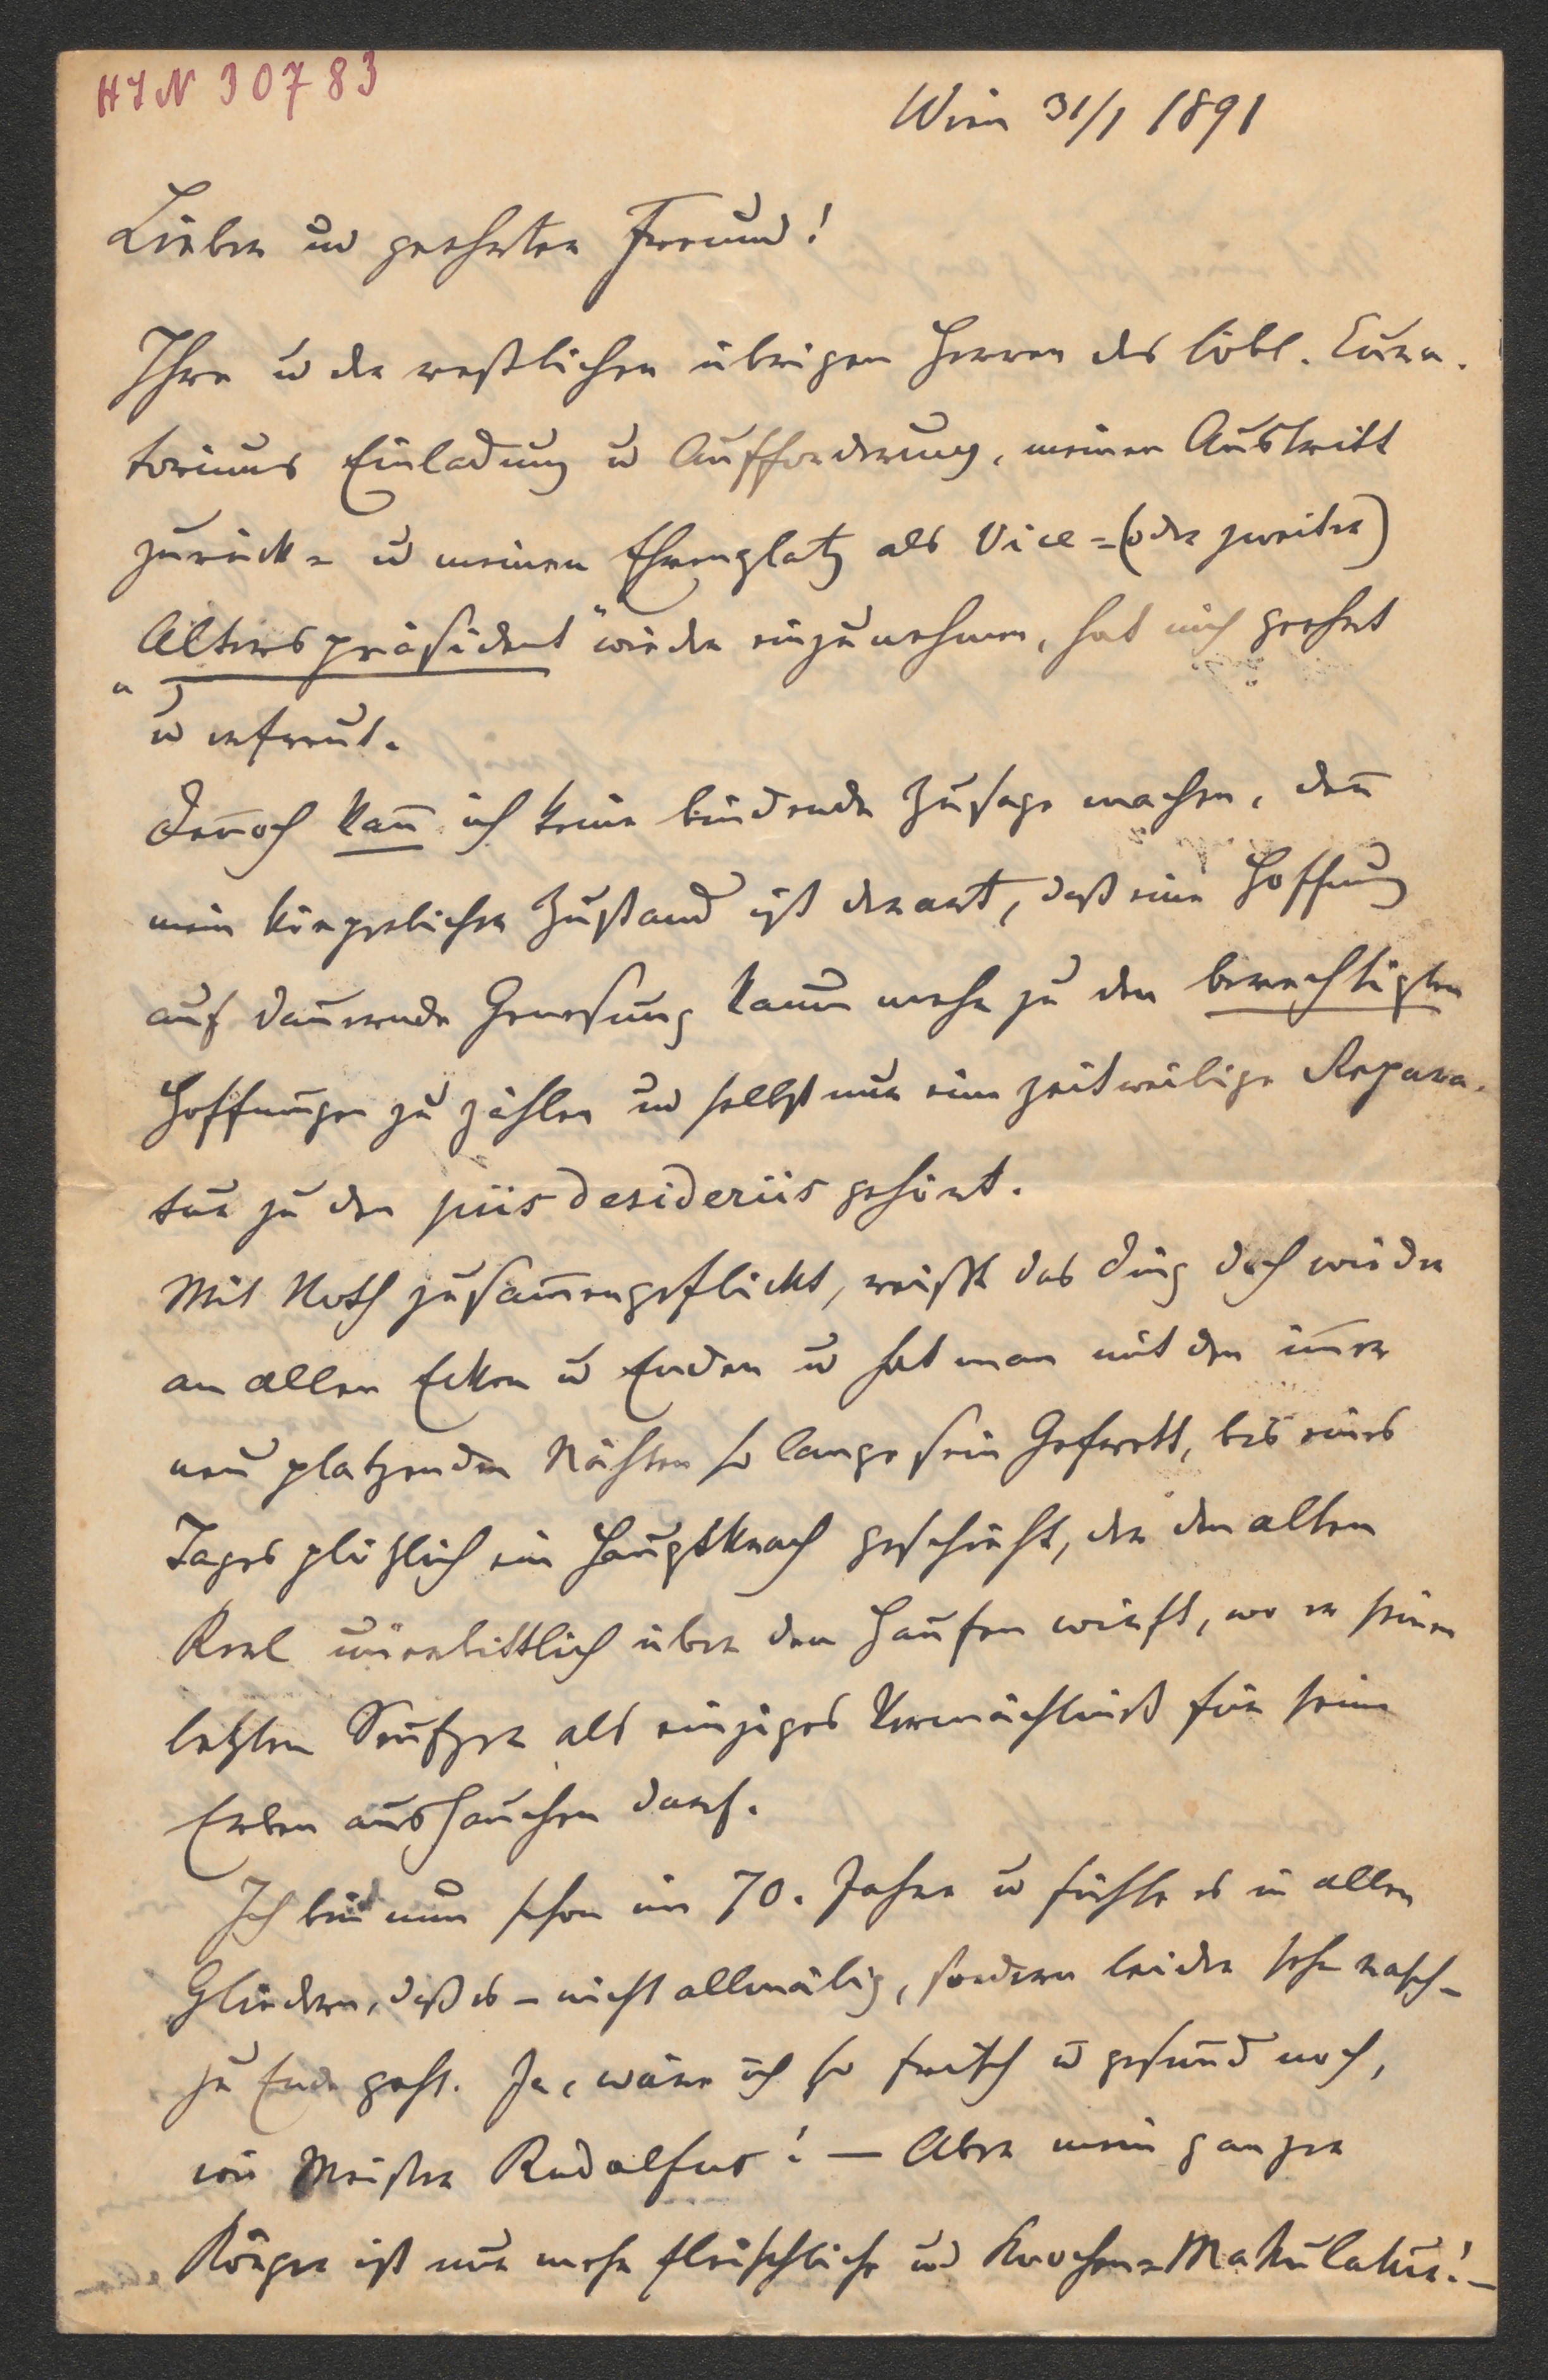 HIN 30783
Wien 31/1 1891
Lieber und geehrter Freund!
Ihre u der restlichen übrigen Herren des löbl. Cura-
toriums Einladung u Aufforderung, meinen Austritt
zurück= u meinen Ehrenplatz als Vice=(oder zweiter)
„Alterspräsident“ wieder einzunehmen, hat mich geehrt
u erfreut.
Den̄och kan̄ ich keine bindende Zusage machen, den̄
mein körperlicher Zustand ist derart, daß eine Hoffnung
auf dauernde Genesung kaum mehr zu den berechtigten
Hoffnungen zu zählen und selbst nur eine zeitweilige Repara-
tur zu den piis desideriis gehört.
Mit Noth zusam̄engeflickt, reißt das Ding doch wieder
an allen Ecken u Enden u hat man mit den im̄er
neu platzenden Nähten so lange sein Gefrett, bis eines
Tages plötzlich ein Hauptkrach geschieht, der den alten
Kerl unerbittlich über den Haufen wirft, wo er seinen
letzten Seufzer als einziges Vermächtniß für seine
Erben aushauchen darf.
Ich bin nun schon im 70. Jahre u fühle es in allen
Gliedern, daß es – nicht allmälig, sondern leider sehr rasch –
zu Ende geht. Ja, wäre ich so frisch u gesund noch,
wie Meister Rudolfus! — Aber mein ganzer
Körper ist nur mehr fleischliche und Knochen=Makulatur! –